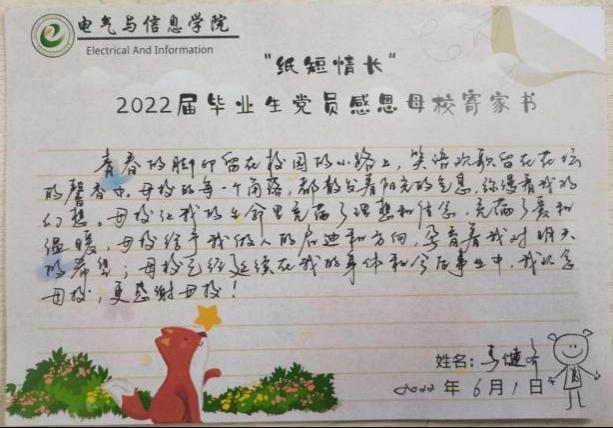 电气与信息学院
Electrical And Information
"纸短情长"
2022届毕业生党员感恩母校寄家书
青春的脚印留在校园的小路上，笑语欢歌留在花坛
的馨香中。母校的每一个角落，都散发着阳光的气息，弥漫着我的
幻想。母校让我的生命里充满了理想和信念，充满了爱和
温暖，母校给予我做人的启迪和方向，孕育着我对明天
的希望；母校已经延续在我的身体和今后事业中，我以念
母校，更感谢母校！
姓名：马健
2022年6月1日